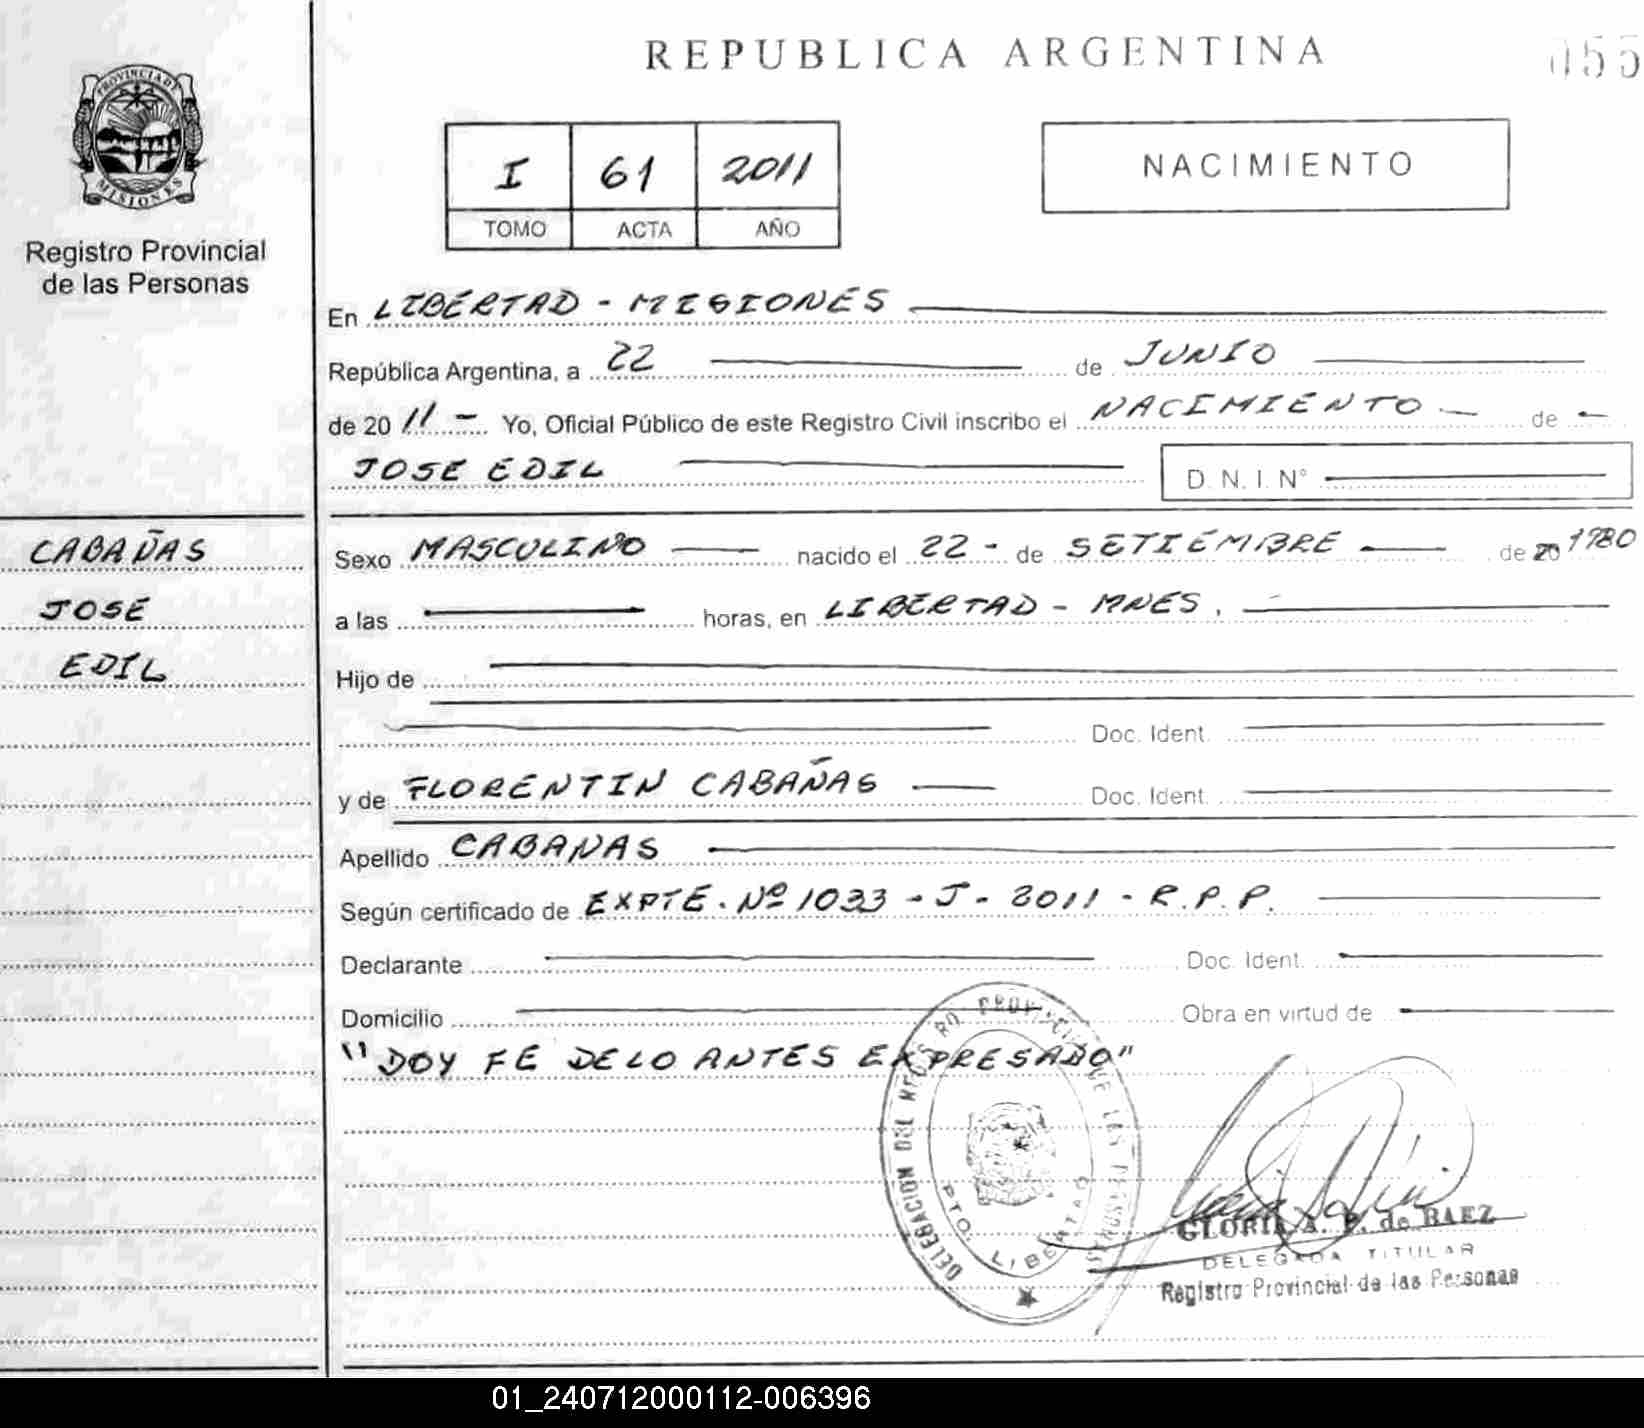 REPUBLICA ARGENTINA
055
PROVINCIA DE
MISIONES
Registro Provincial
de las Personas
I 61 2011
TOMO ACTA AÑO
NACIMIENTO
En LIBERTAD - MISIONES
República Argentina, a 22 de JUNIO
de 20 11 - Yo, Oficial Público de este Registro Civil inscribo el NACIMIENTO - de -
JOSE EDIL D. N. I. N°
CABAÑAS
JOSE
EDIL
Sexo MASCULINO nacido el 22 - de SETIEMBRE de 20 1980
a las horas, en LIBERTAD - MNES.
Hijo de
Doc. Ident.
y de FLORENTIN CABAÑAS Doc. Ident.
Apellido CABANAS
Según certificado de EXPTE. Nº 1033 - J - 2011 - R. P. P.
Declarante Doc. Ident.
Domicilio Obra en virtud de
"DOY FE DE LO ANTES EXPRESADO"
DELEGACION DEL REGISTRO PROVINCIAL DE LAS PERSONAS
PTO. LIBERTAD
GLORIA A. P. de BAEZ
DELEGADA TITULAR
Registro Provincial de las Personas
01_240712000112-006396